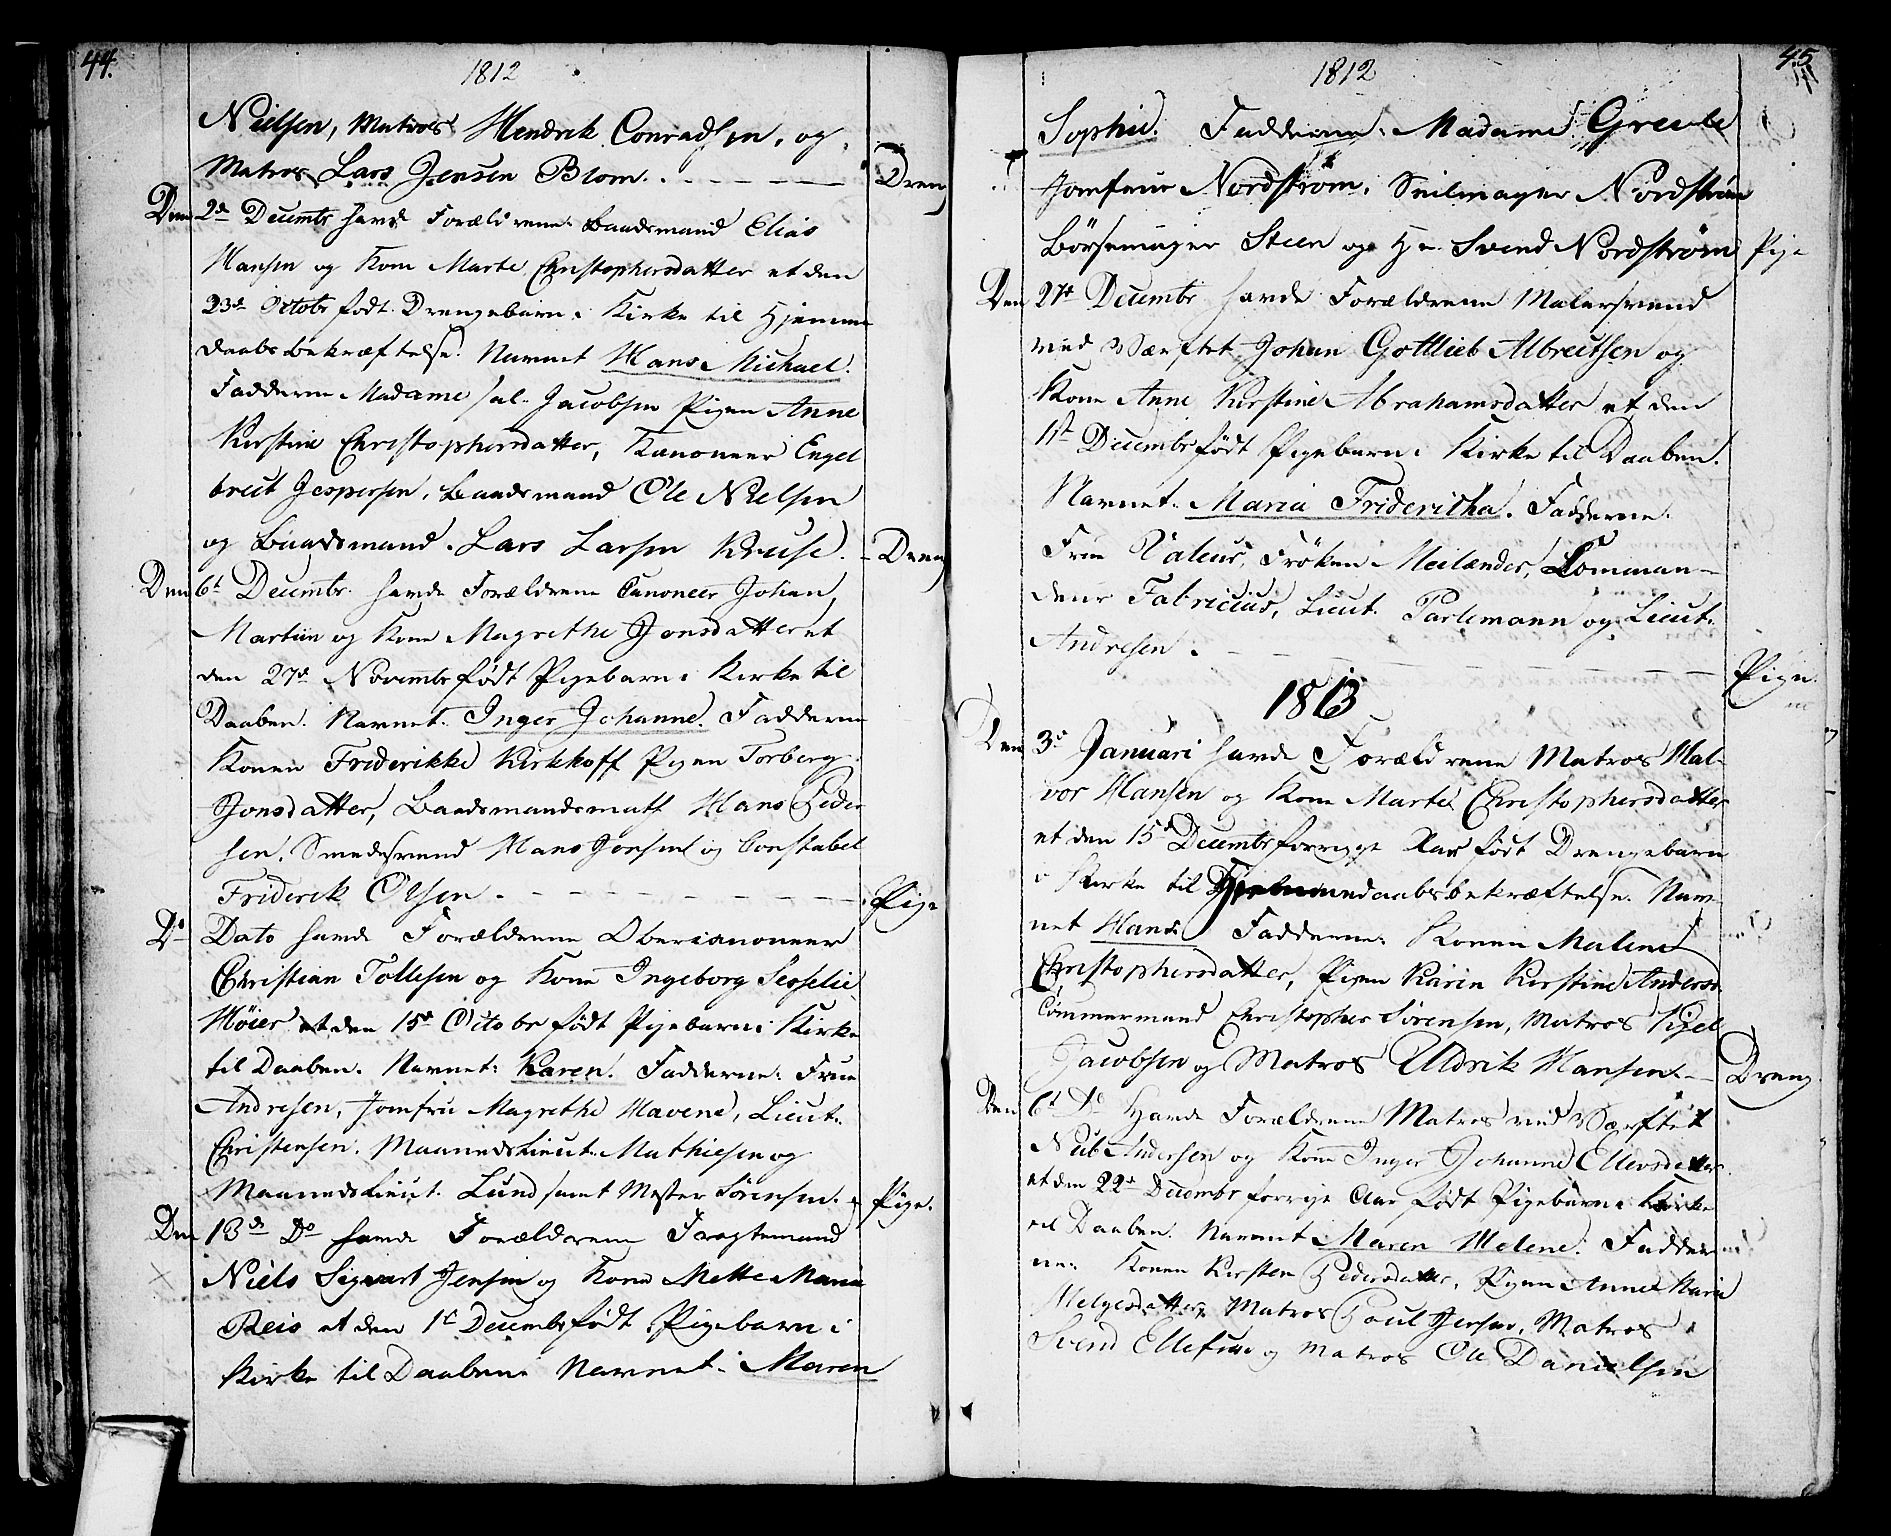 44.
1812
Nielsen, Matros Hendrik Conradsen, og
Matros Lars Jensen Blom. Dreng
Den 2de Decembr havde Forældrene Baadsmand Elias
Hansen og Kone Marte Christophersdatter et den
23de Octobr født Drengebarn i Kirke til Hjemme
daabsbekræftelse. Navnet Hans Michael.
Fadderne Madame sal. Jacobsen Pigen Anne
Kirstine Christophersdatter, Kanoneer Engel
breit Jespersen, Baadsmand Ole Nielsen
og Baadsmand Lars Larsen Kruse. Dreng
Den 6t Decembr. havde Forældrene Canoneer Johan
Martin og Kone Magrethe Jonsdatter et
den 27de Novembr født Pigebarn i Kirke til
Daaben. Navnet. Inger Johanne. Fadderne
Konen Friderikke Kirkhoff Pigen Torberg
Jonsdatter, Baadsmandsmath Hans Peder
sen, Smedesvend Hans Jonsen og Constabel
Friderik Olsen. Pige
Do Dato havde Forældrene Obercanoneer
Christian Tollesen og Kone Ingeborg Sesselie
Høier et den 15de Octobr født Pigebarn i Kirke
til Daaben. Navnet: Karen. Fadderne: Frue
Andresen, Jomfru Magrethe Havene, Lieut.
Christensen, Maaneds Lieut. Mathiesen og
Maaneds Lieut. Lund samt Mester Sørensen. Pige.
Den 13de Do havde Forældrene Fragtemand
Niels Sigvart Jensen og Kone Mette Maria
Reis et den 1st Decembr født Pigebarn i
Kirke til Daaben Navnet. Maren
45
1812
Sophie. Fadderne. Madame Greve
Jomfrue Nordstrøm, Seilmager Nordstrøm
Børsemager Steen og Hr. Svend Nordstrøm Pige
Den 27de Decembr havde Forældrene Malersvend
ved Værftet Johan Gottlieb Albreitsen og
Kone Anne Kirstine Abrahamsdatter et den
11t Decembr født Pigebarn i Kirke til Daaben.
Navnet. Maria Frideritha. Fadderne.
Frue Valeur, Frøken Meilænder, Comman-
deur Fabricius, Lieut. Parlemann og Lieut.
Andresen. Pige.
1813
Den 3de Januari havde Forældrene Matros Hal-
vor Hansen og Kone Marte Christophersdatter
et den 15de Decembr forrige Aar født Drengebarn
i Kirke til Hjemmedaabsbekræftelse. Nav-
net Hans. Fadderne: Konen Malene
Christophersdatter, Pigen Karin Kirstine Andersd.
Tømmermand Christopher Sørensen, Matros Kjel
Jacobsen og Matros Uldrik Hansen. Dreng
Den 6t Do Havde Forældrene Matros ved Værftet
Niels Andersen og Kone Inger Johanne Ellevsdatter
et den 22de Decembr forrige Aar født Pigebarn i Kirke
til Daaben. Navnet Maren Helene. Fadder
ne: Konen Kirsten Pedersdatter, Pigen Anne Marie
Helgesdatter, Matros Poul Jensen, Matros
Svend Ellefsen og Matros Ole Danielsen